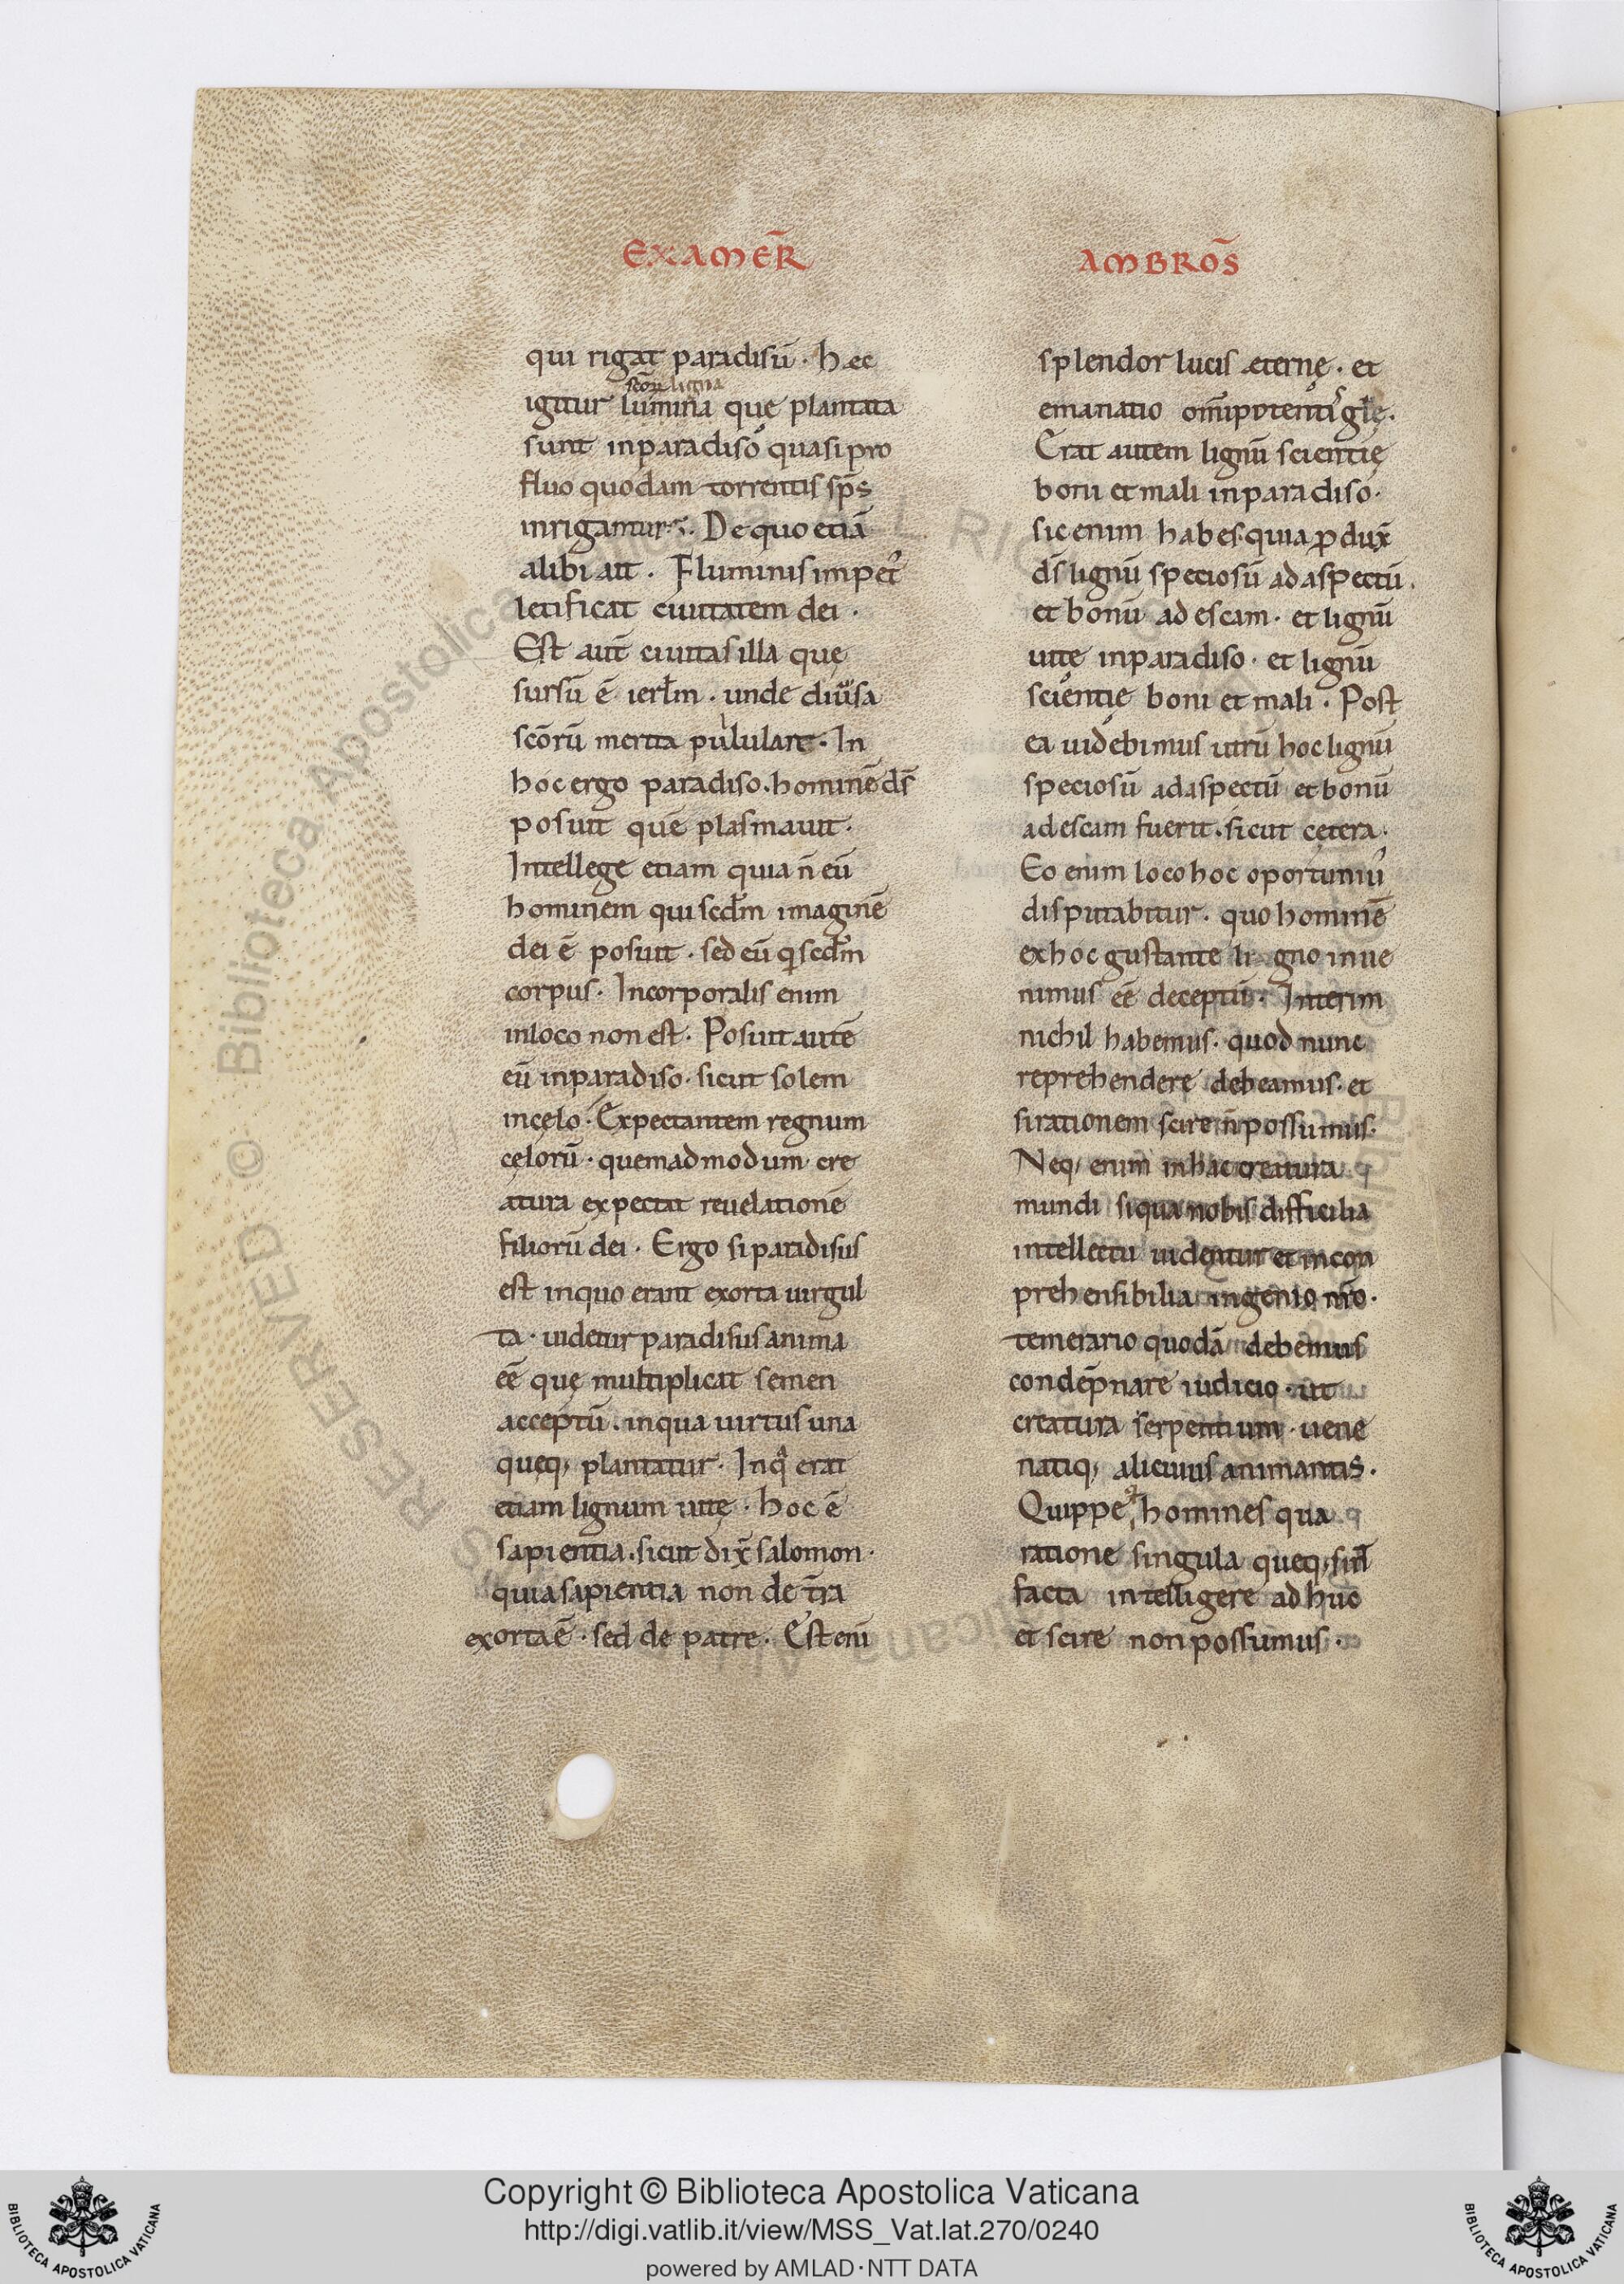 EXAMER̄
AMBROS̄
qui rigat paradisū · hæc
scōꝝ ligna
igitur lumina que plantata
sunt inparadiso quasi pro
fluo quodam torrentis sp̄s
inrigantur · De quo etiā
alibi ait . Fluminis impet᷒
letificat ciuitatem dei .
Est aut̄ ciuitas illa quę
sursū ē ierłm . unde diu͛sa
scōrū merita pululare . In
hoc ergo paradiso . hominē ds̄
posuit quē plasmauit .
Intellege etiam quia n̄ eū
hominem qui scdm̄ imaginē
dei ē posuit . sed eū q scdm̄
corpus . Incorporalis enim
inloco non est . Posuit autē
eū inparadiso . sicut solem
incęlo . Expectantem regnum
cęlorū . quemadmodum cre
atura expectat reuelationē
filiorū dei . Ergo si paradisus
est inquo erant exorta uirgul
ta . uidetur paradisus anima
eē quę multiplicat semen
acceptū . inqua uirtus una
queq; plantatur . Inqͣ erat
etiam lignum uitę . hoc ē
sapientia . sicut dix̄ salomon .
quia sapientia non de t̄ra
exorta ē . sed de patre . Est eni
splendor lucis æternę . et
emanatio omīpotentis glę .
Erat autem lignū scientię
boni et mali inparadiso .
sic enim habes . quia ꝓdux̄
ds̄ lignū speciosū ad aspectū .
et bonū ad escam . et lignū
uite inparadiso . et lignū
scientię boni et mali . Post
ea uidebimus utrū hoc lignū
speciosū ad aspectū et bonū
ad escam fuerit . sicut cętera .
Eo enim loco hoc oportuniu᷒
disputabitur . quo hominē
ex hoc gustante li gno inue
nimus eē deceptū . Interim
nichil habemus . quod nunc
reprehendere debeamus . et
si rationem scire n̄ possumus .
Neq; enim inhac creatura
mundi si qua nobis difficilia
intellectu uidentur et incon
prehensibilia ingenio nr̄o .
temerario quodā debemus
condēpnare iudicio . ut
creatura serpentium . uene
natiq; alicuius animantis .
Quippe homines qua
ratione singula queq; sint
facta intelligere ad huc
et scire non possumus .
Copyright © Biblioteca Apostolica Vaticana
http://digi.vatlib.it/view/MSS_Vat.lat.270/0240
powered by AMLAD · NTT DATA
BIBLIOTECA APOSTOLICA VATICANA
BIBLIOTECA APOSTOLICA VATICANA